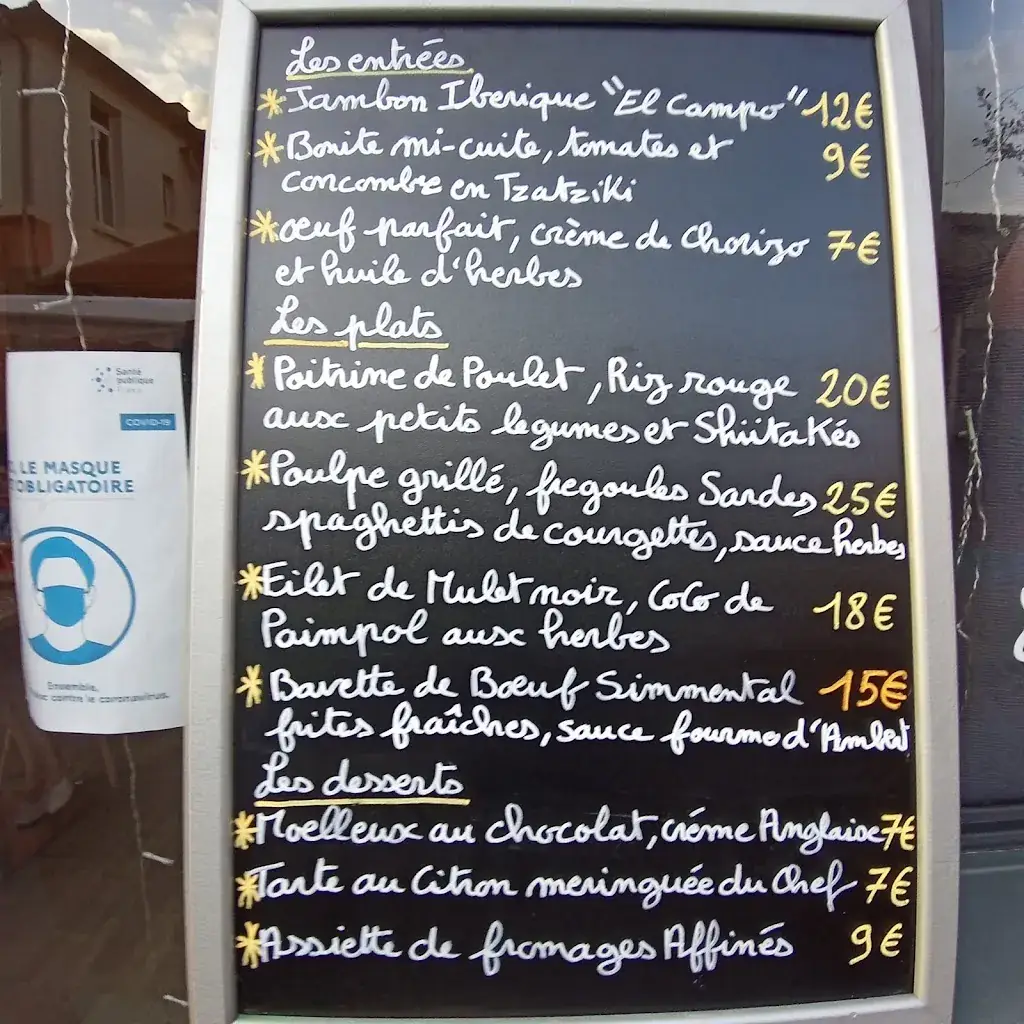 Les entrées
*Jambon Iberique "El Campo" 12€
*Bonite mi-cuite, tomates et 9€
concombre en Tzatziki
*œuf parfait, crème de Chorizo 7€
et huile d'herbes
Les plats
*Poitrine de Poulet, Riz rouge 20€
aux petits legumes et Shiitakés
*Poulpe grillé, fregoules Sardes 25€
spaghettis de courgettes, sauce herbes
*Filet de Mulet noir, CoCo de 18€
Paimpol aux herbes
*Bavette de Bœuf Simmental 15€
frites fraîches, sauce fourme d'Ambert
Les desserts
*Moelleux au chocolat, créme Anglaise 7€
*Tarte au Citron meringuée du Chef 7€
*Assiette de fromages Affinés 9€
Santé
publique
COVID-19
LE MASQUE
OBLIGATOIRE
Ensemble,
contre le coronavirus.